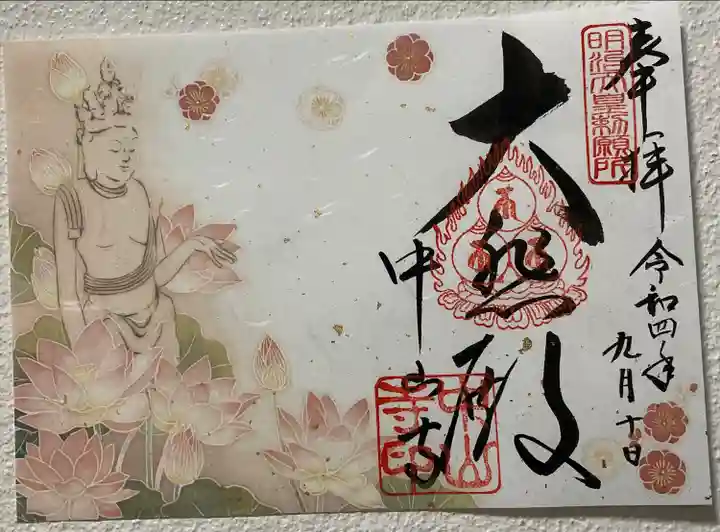 奉拝
明治天皇勅願所
令和四年
九月十日
大悲殿
中山寺
中山寺印